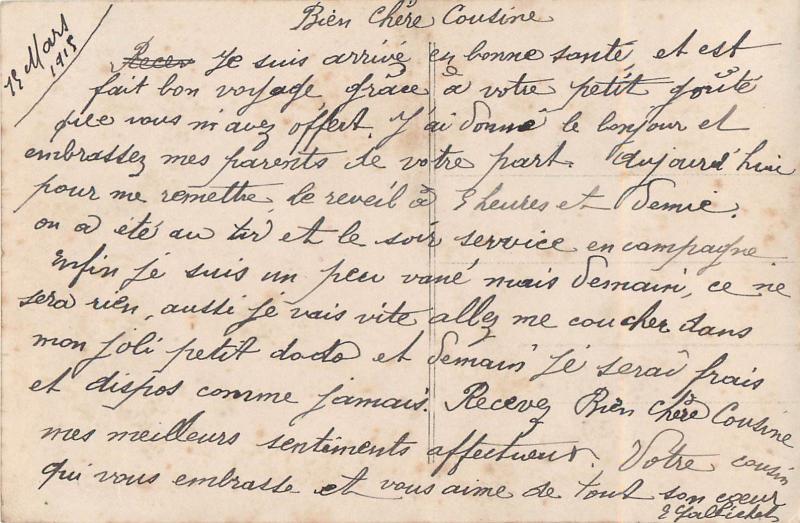 Mars
1915
Bien chère Cousine
Je suis arrivé en bonne santé, et est
fait bon voyage, grâce à votre petit goûté
que vous m'avez offert. J'ai donné le bonjour et
embrassez mes parents de votre part. Aujourd'hui
pour me remettre, le reveil à 3 heures et demie.
on a été au tir et le soir service en campagne
Enfin je suis un peu vané mais demain, ce ne
sera rien, aussi je vais vite allez me coucher dans
mon joli petit dodo et demain je serai frais
et dispos comme jamais. Recevez Bien chère Cousine
mes meilleurs sentiments affectueux. Votre cousin
qui vous embrasse et vous aime de tout son cœur